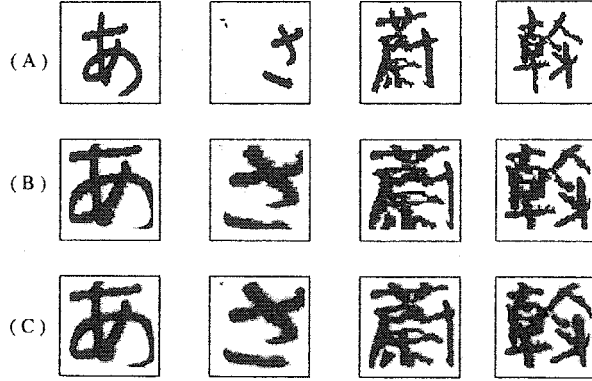 (A) あ さ 蔚 斡
(B) あ さ 蔚 斡
(C) あ さ 蔚 斡